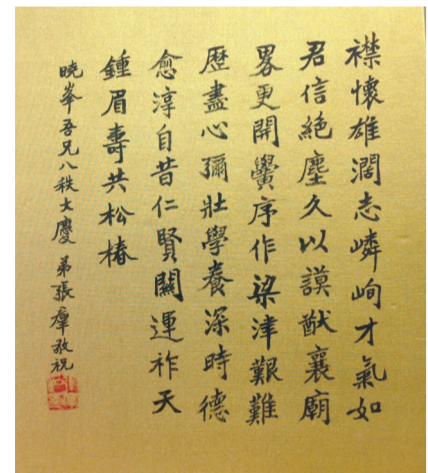 襟懷雄濶志嶙峋才氣如
君信絕塵久以謨猷襄廟
畧更開黌序作梁津艱難
歷盡心彌壯學養深時德
愈淳自昔仁賢關運祚天
鍾眉壽共松椿
曉峯吾兄八秩大慶 弟張羣敬祝